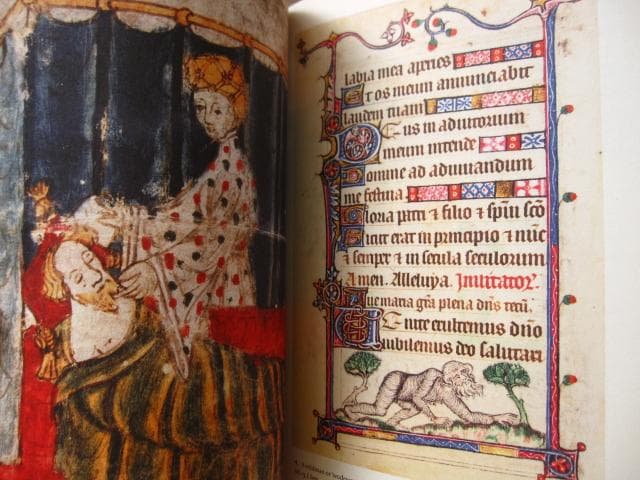 labia mea aperies
Et os meum annunciabit
laudem tuam
Deus in adiutorium
meum intende
Domine ad adiuuandum
me festina
Gloria patri & filio & spiui sco
Sicut erat in principio & nunc
& semper & in secula seculorum
Amen. Alleluya. Inuitator.
Aue maria gra plena dns tecu.
Uenite exultemus dno
iubilemus deo salutari